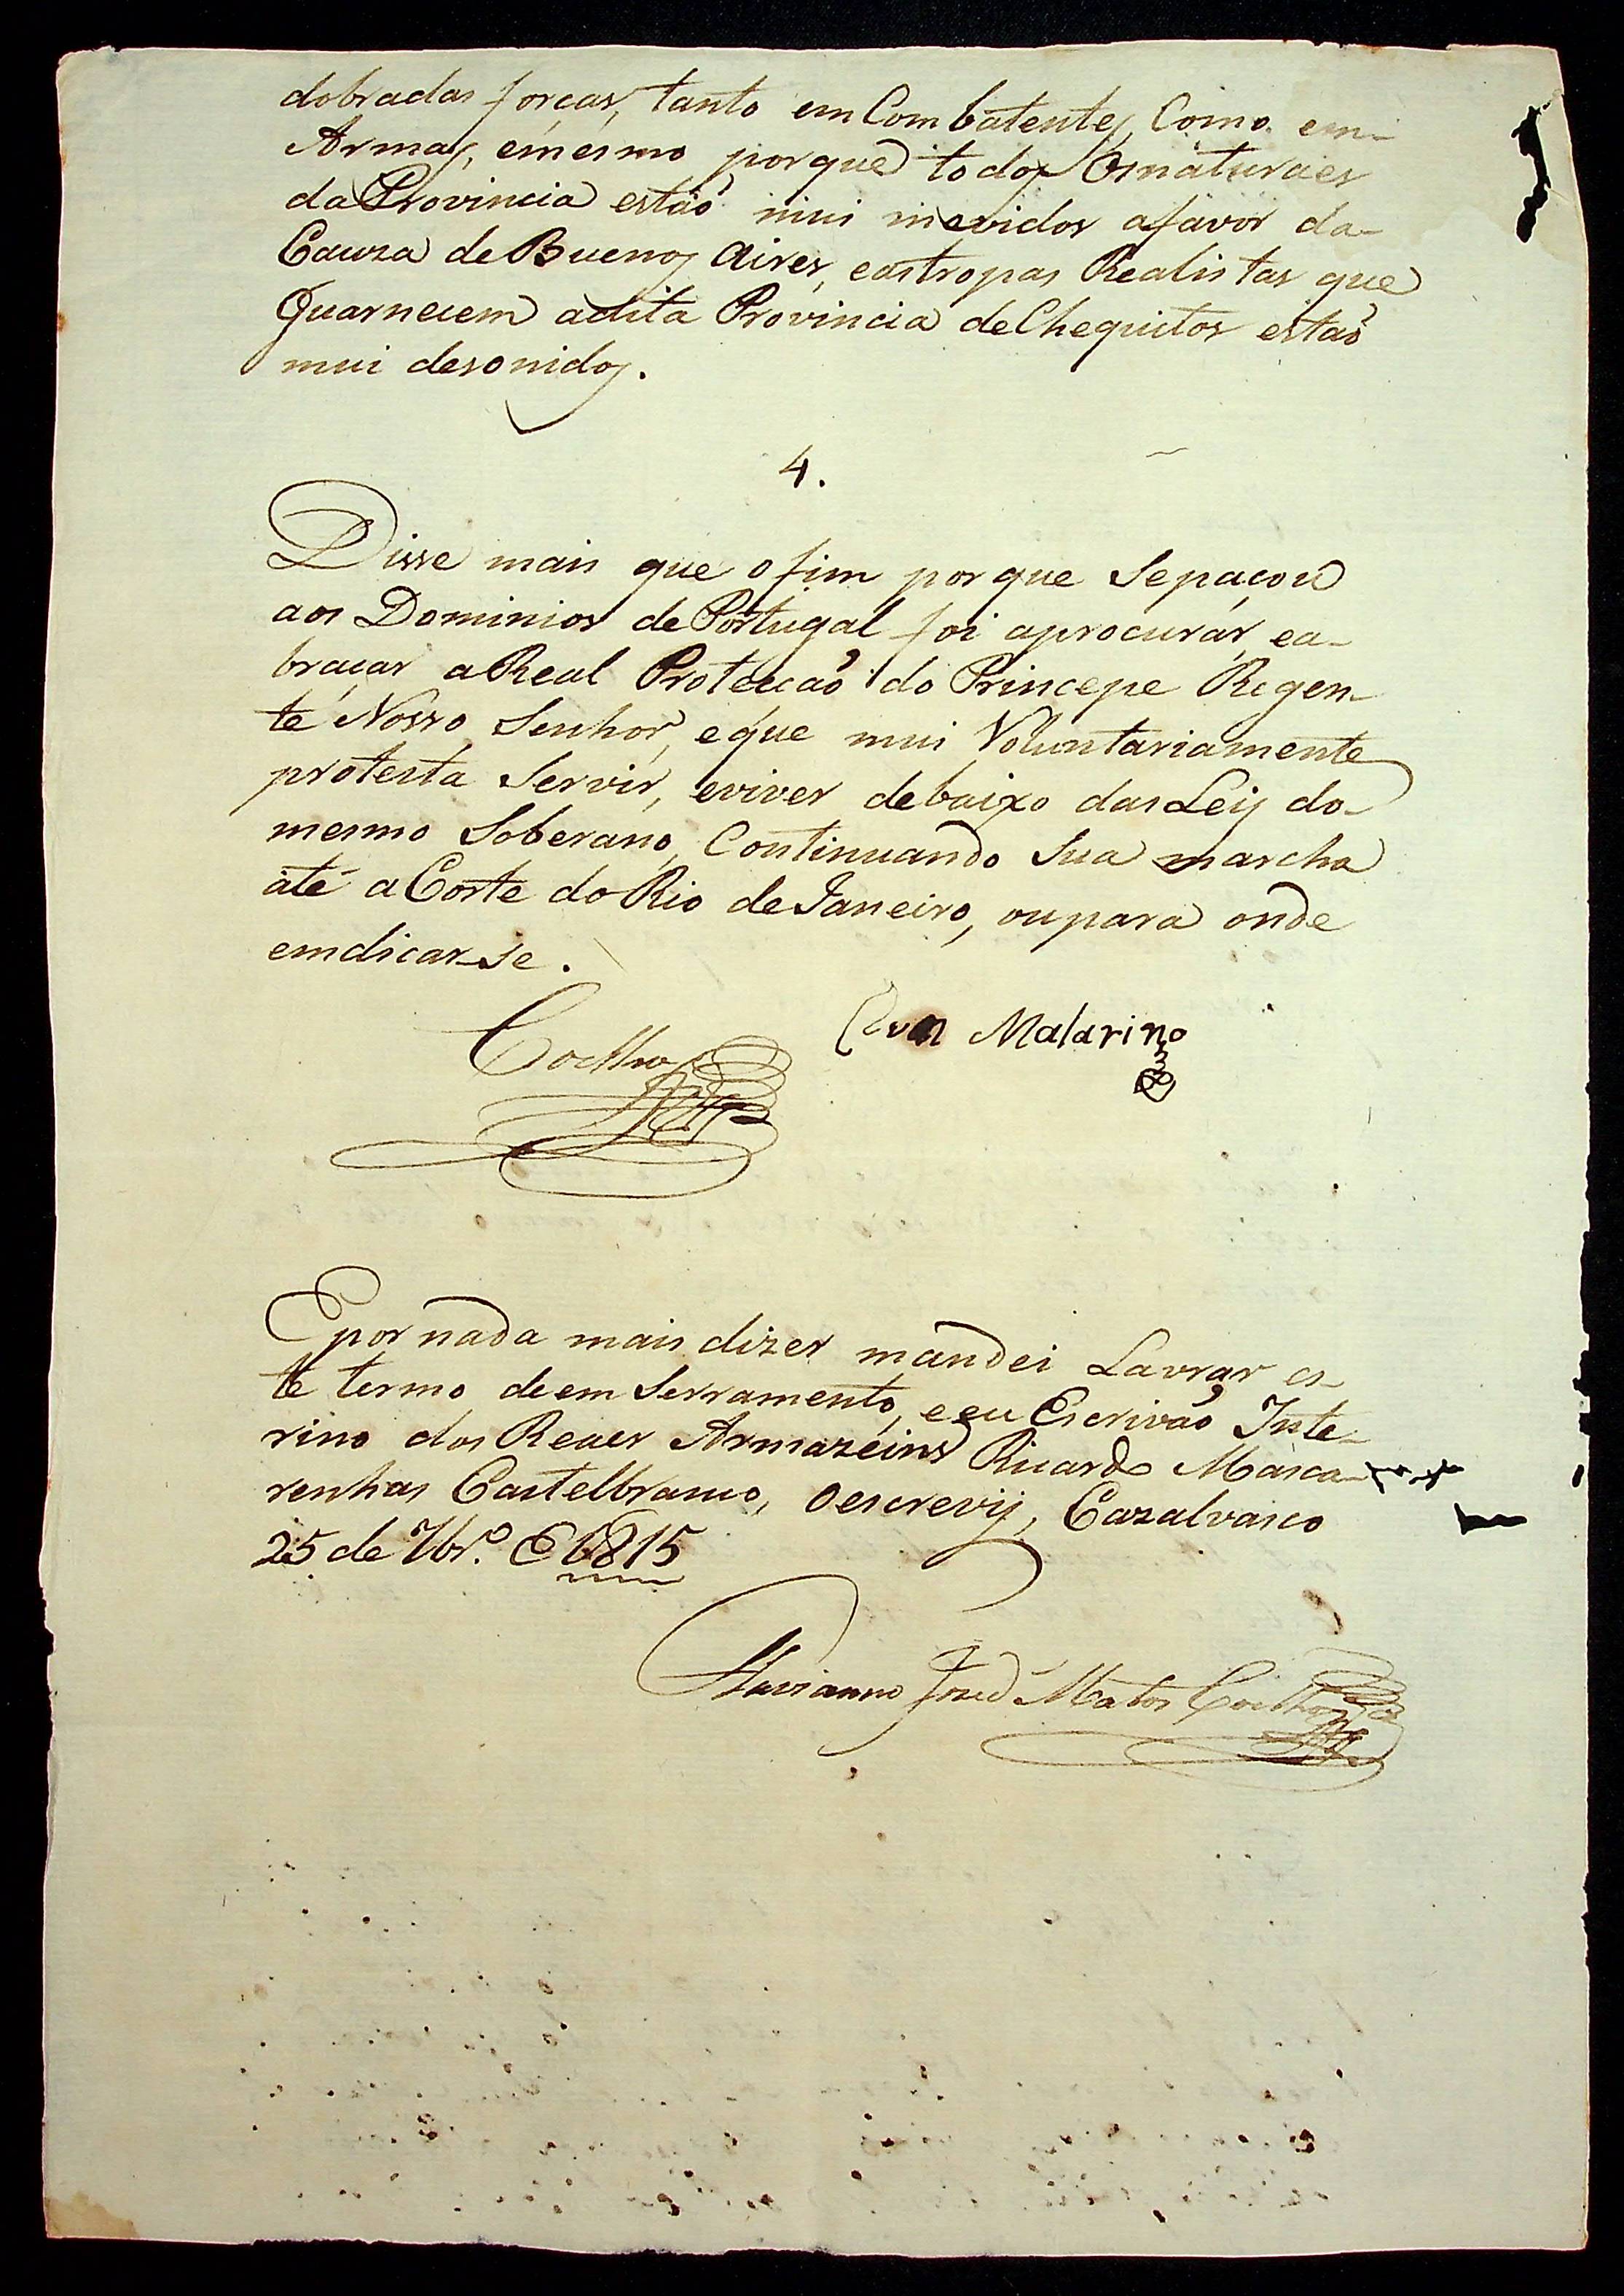 dobradas forças, tanto em Combatentes, Como em-
Armas, emésmo porque todos Osnaturaes
da Provincia estaõ mui movidos afavor da-
Cauza de Buenos Aires, eastropas Realistas que
Guarnecem adita Provincia de Chequitos estaõ
mui desonidos.
4.
Disse mais que ofim porque Sepaçou
aos Dominios de Portugal foi aprocurár, ea-
braçar a Real Protecçaõ do Princepe Regen-
te Nosso Senhor, eque mui Voluntariamente
protesta Servir, eviver debaixo das Leis do-
mesmo Soberano, Continuando Sua marcha
até a Corte do Rio de Janeiro, oupara onde
emdicar-se.
Coelho
Malarino
E por nada mais dizer mandei Lavrar es-
te termo de em Serramento, e eu Escrivaõ Inte-
rino dos Reaes Armazéins Ricardo Masca-
renhas Castelbranco, Oescrevij, Cazalvasco
25 de 7br.º E 1815
José Matos Coelho